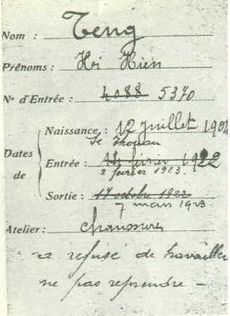 Nom : Teng
Prénoms : Hi Hien
N° d'Entrée : 4088 5370
Naissance : 12 juillet 1904
Se Thouan
Dates de
Entrée : 14 février 1922
2 février 1923.
Sortie : 17 octobre 1922
7 mars 1923
Atelier : Chaussures
a refusé de travailler
ne pas reprendre —